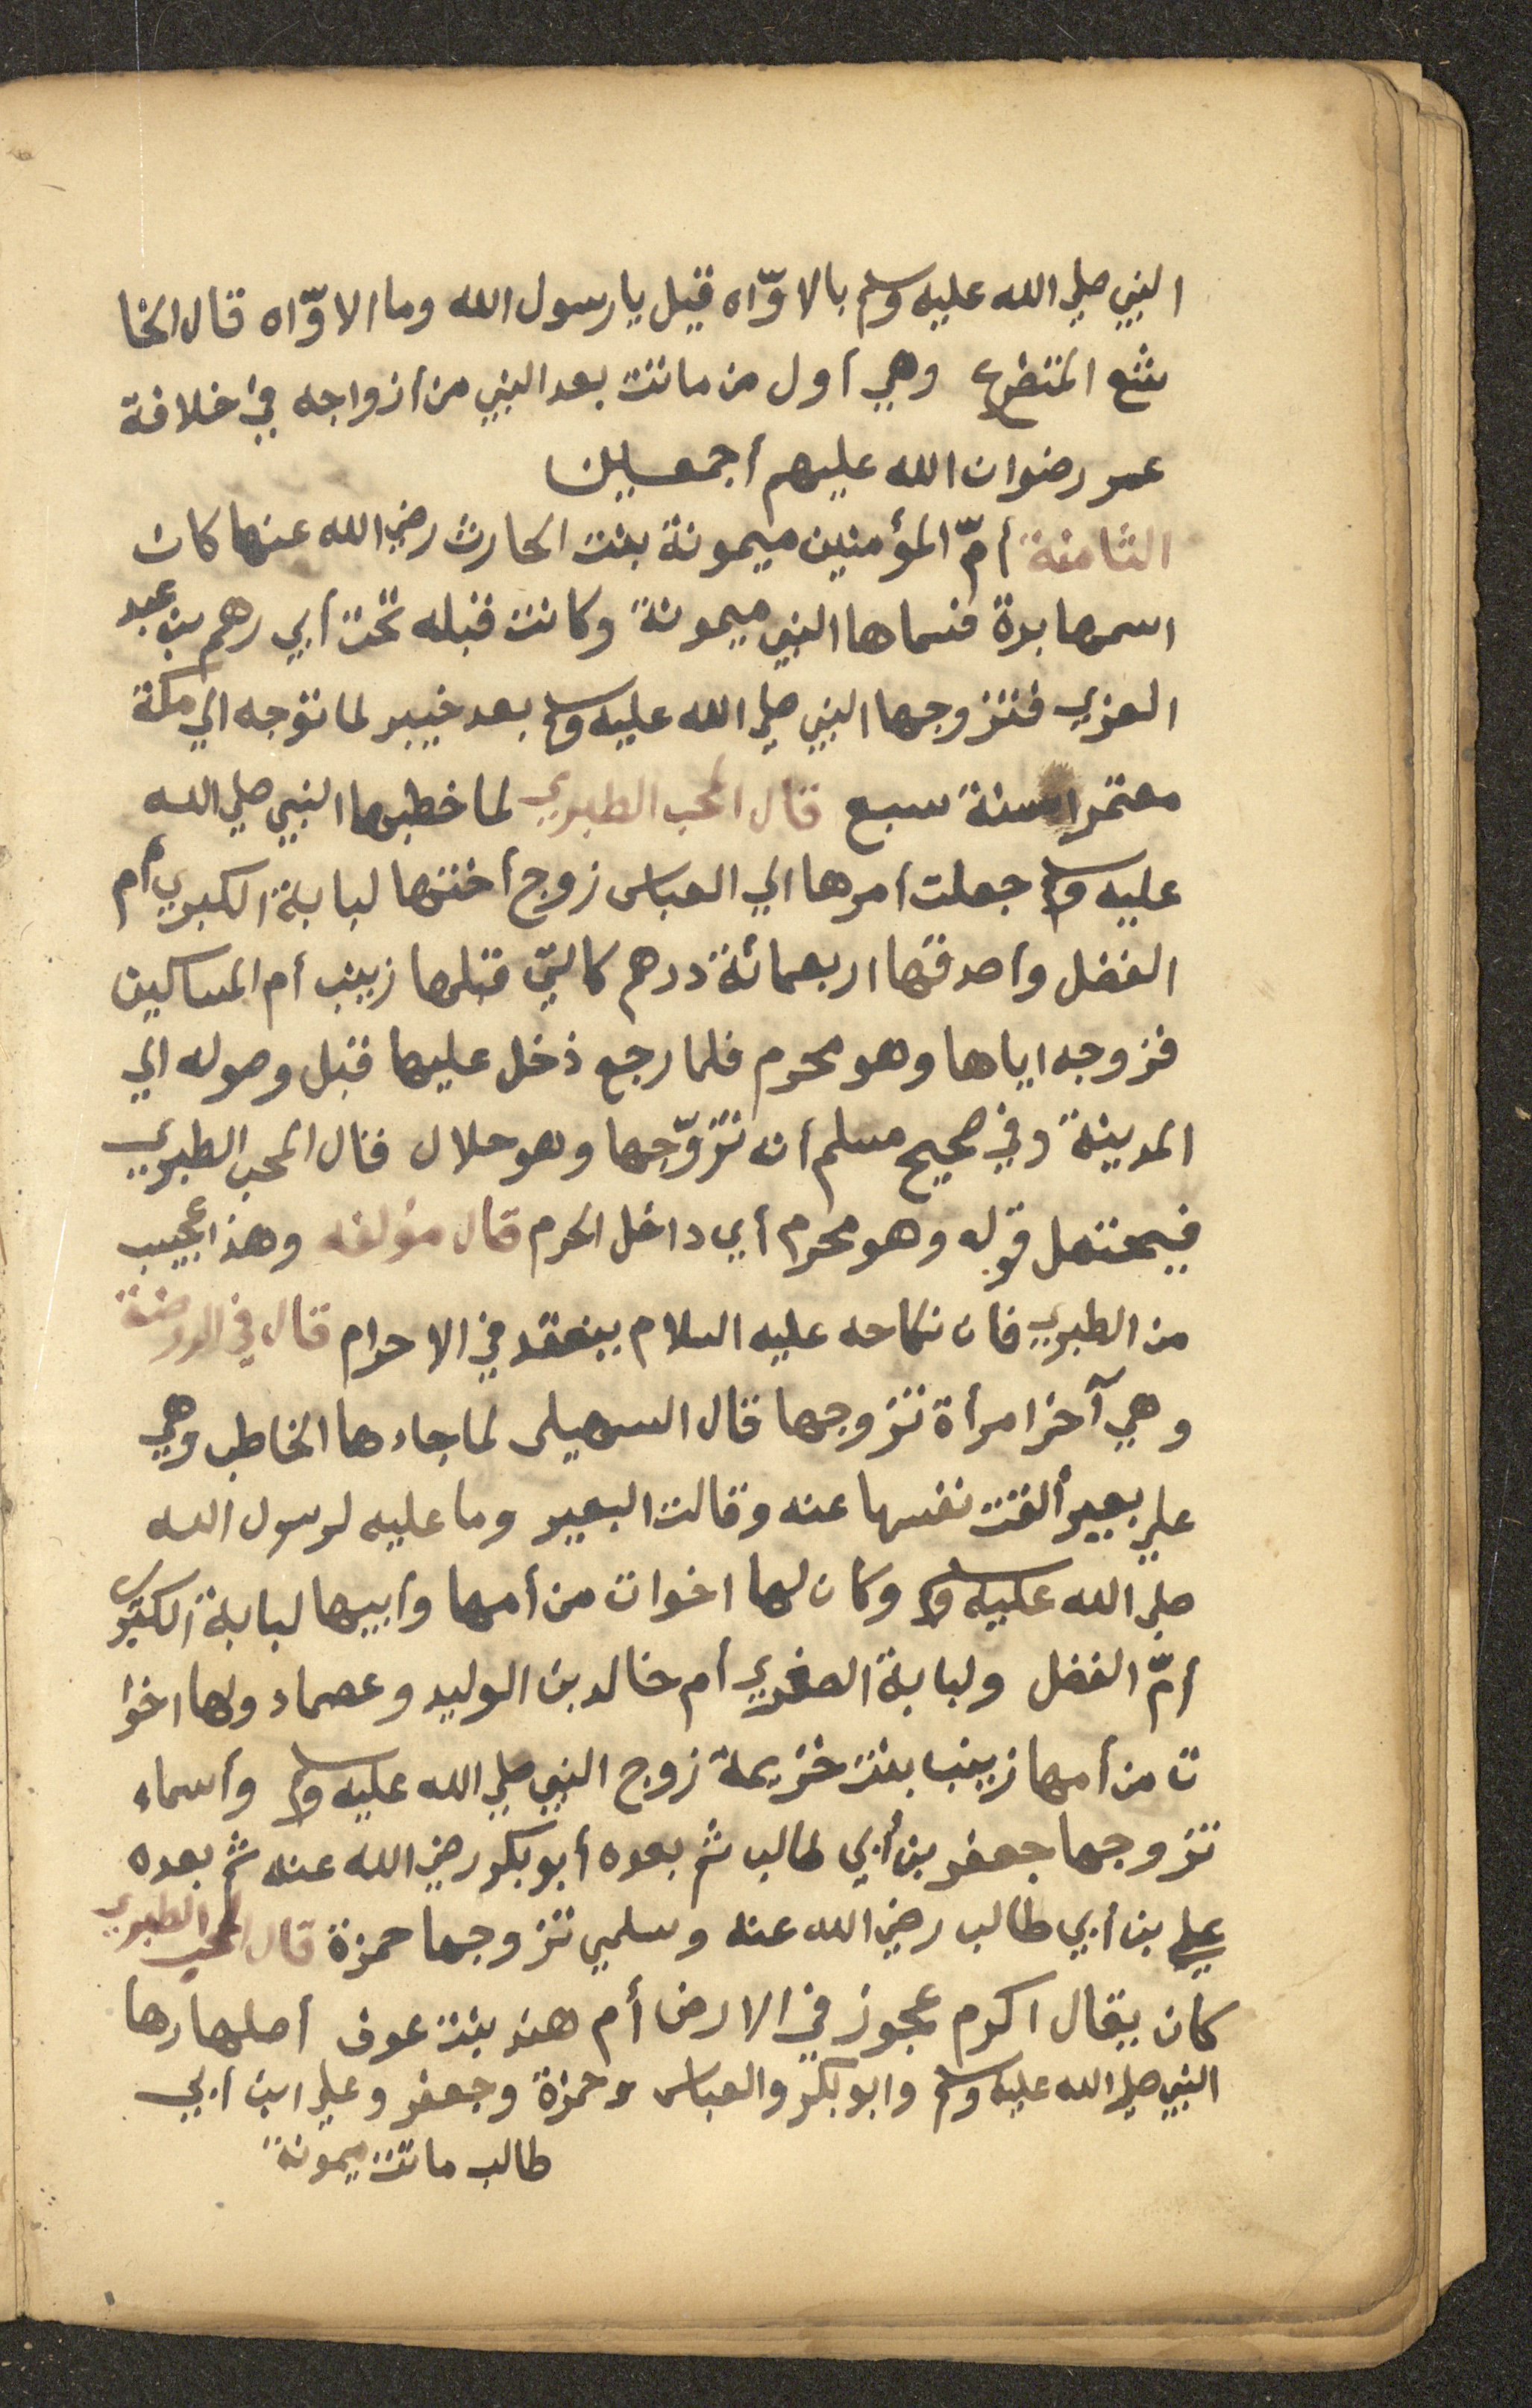 النبي صلى الله عليه وسلم بالاوّاه قيل يا رسول الله وما الاوّاه قال الخا
شع المتضرع وهي أول من ماتت بعد النبي من أزواجه في خلافة
عمر رضوان الله عليهم أجمعين
الثامنة أمّ المؤمنين ميمونة بنت الحارث رضي الله عنها كان
اسمها برة فسماها النبي ميمونة وكانت قبله تحت أبي رهم بن عبد
العزي فتزوجها النبي صلى الله عليه وسلم بعد خيبر لما توجه الي مكة
معتمرا سنة سبع قال المحب الطبري لما خطبها النبي صلي الله
عليه وسلم جعلت أمرها الي العباس زوج أختها لبابة الكبري أم
الفضل وأصدقها اربعمائة درهم كالتي قبلها زينب أم المساكين
فزوجه اياها وهو محرم فلما رجع دخل عليها قبل وصوله الي
المدينة وفي صحيح مسلم أنه تزوّجها وهو حلال قال المحب الطبري
فيحتمل قوله وهو محرم أي داخل الحرم قال مؤلفه وهذا عجيب
من الطبري فان نكاحه عليه السلام ينعقد في الاحرام قال في الروضة
وهي آخر امرأة تزوجها قال السهيلى لما جاءها الخاطب وهي
علي بعير ألقت نفسها عنه وقالت البعير وما عليه لرسول الله
صلي الله عليه وسلم وكان لها اخوات من أمها وأبيها لبابة الكبرى
أمّ الفضل ولبابة الصغري أم خالد بن الوليد وعصماء ولها اخوا
ت من أمها زينب بنت خزيمة زوج النبي صلي الله عليه وسلم وأسماء
تزوجها جعفر بن أبي طالب ثم بعده أبو بكر رضي الله عنه ثم بعده
علي بن أبي طالب رضي الله عنه وسلمي تزوجها حمزة قال المحب الطبري
كان يقال اكرم عجوز في الارض أم هند بنت عوف أصهارها
النبي صلي الله عليه وسلم وابو بكر والعباس وحمزة وجعفر وعلي ابن أبي
طالب ماتت ميمونة